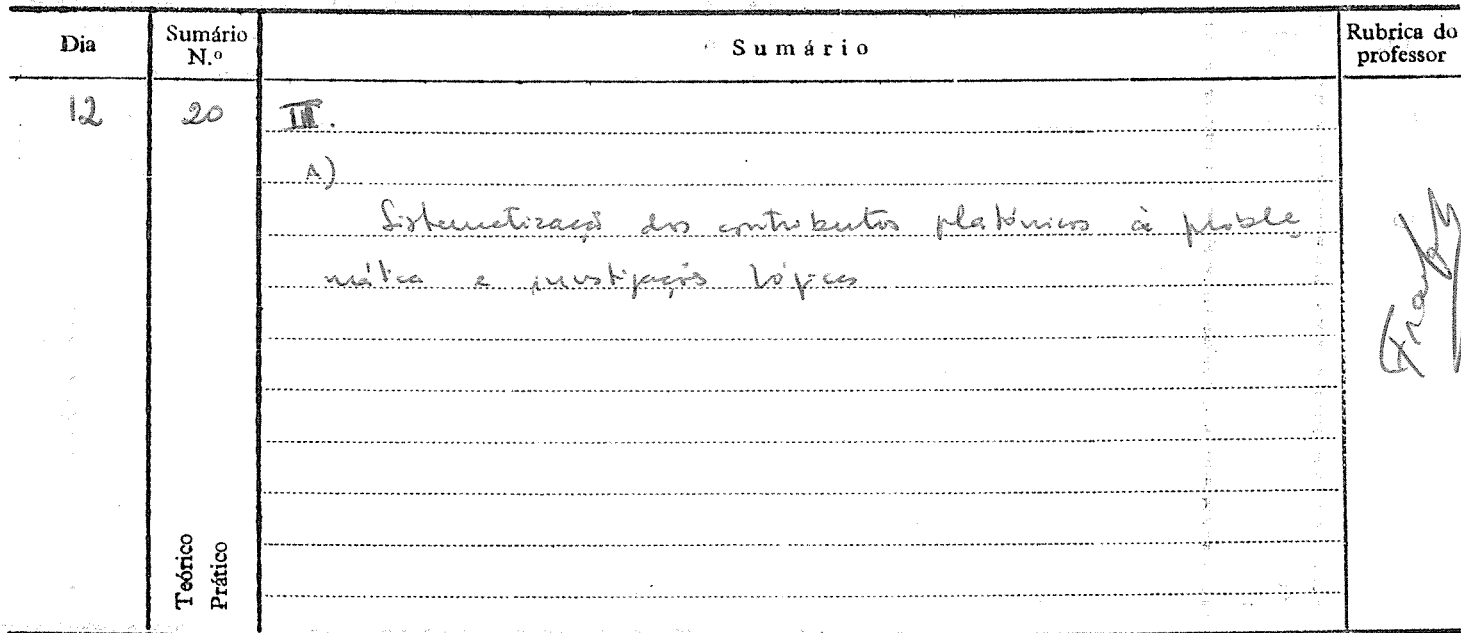 Dia
Sumário N.º
Sumário
Rubrica do professor
12
20
III.
A)
Sistematização dos contributos platónicos à proble
mática e investigações lógicas
Teórico
Prático